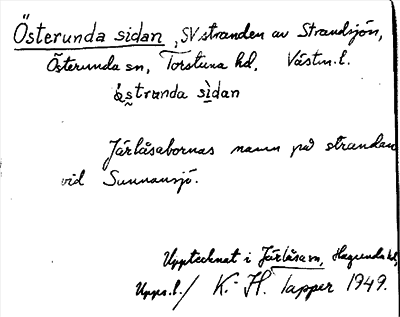 Österunda sidan, SV stranden av Strandsjön,
Österunda sn, Torstuna hd. Västm.l.
östrunda sidan
Järlåsabornas namn på strandan
vid Sunnansjö.
Upptecknat i Järlåsa sn, Hagunda hd,
Upps.l./ K.-H. Tapper 1949.